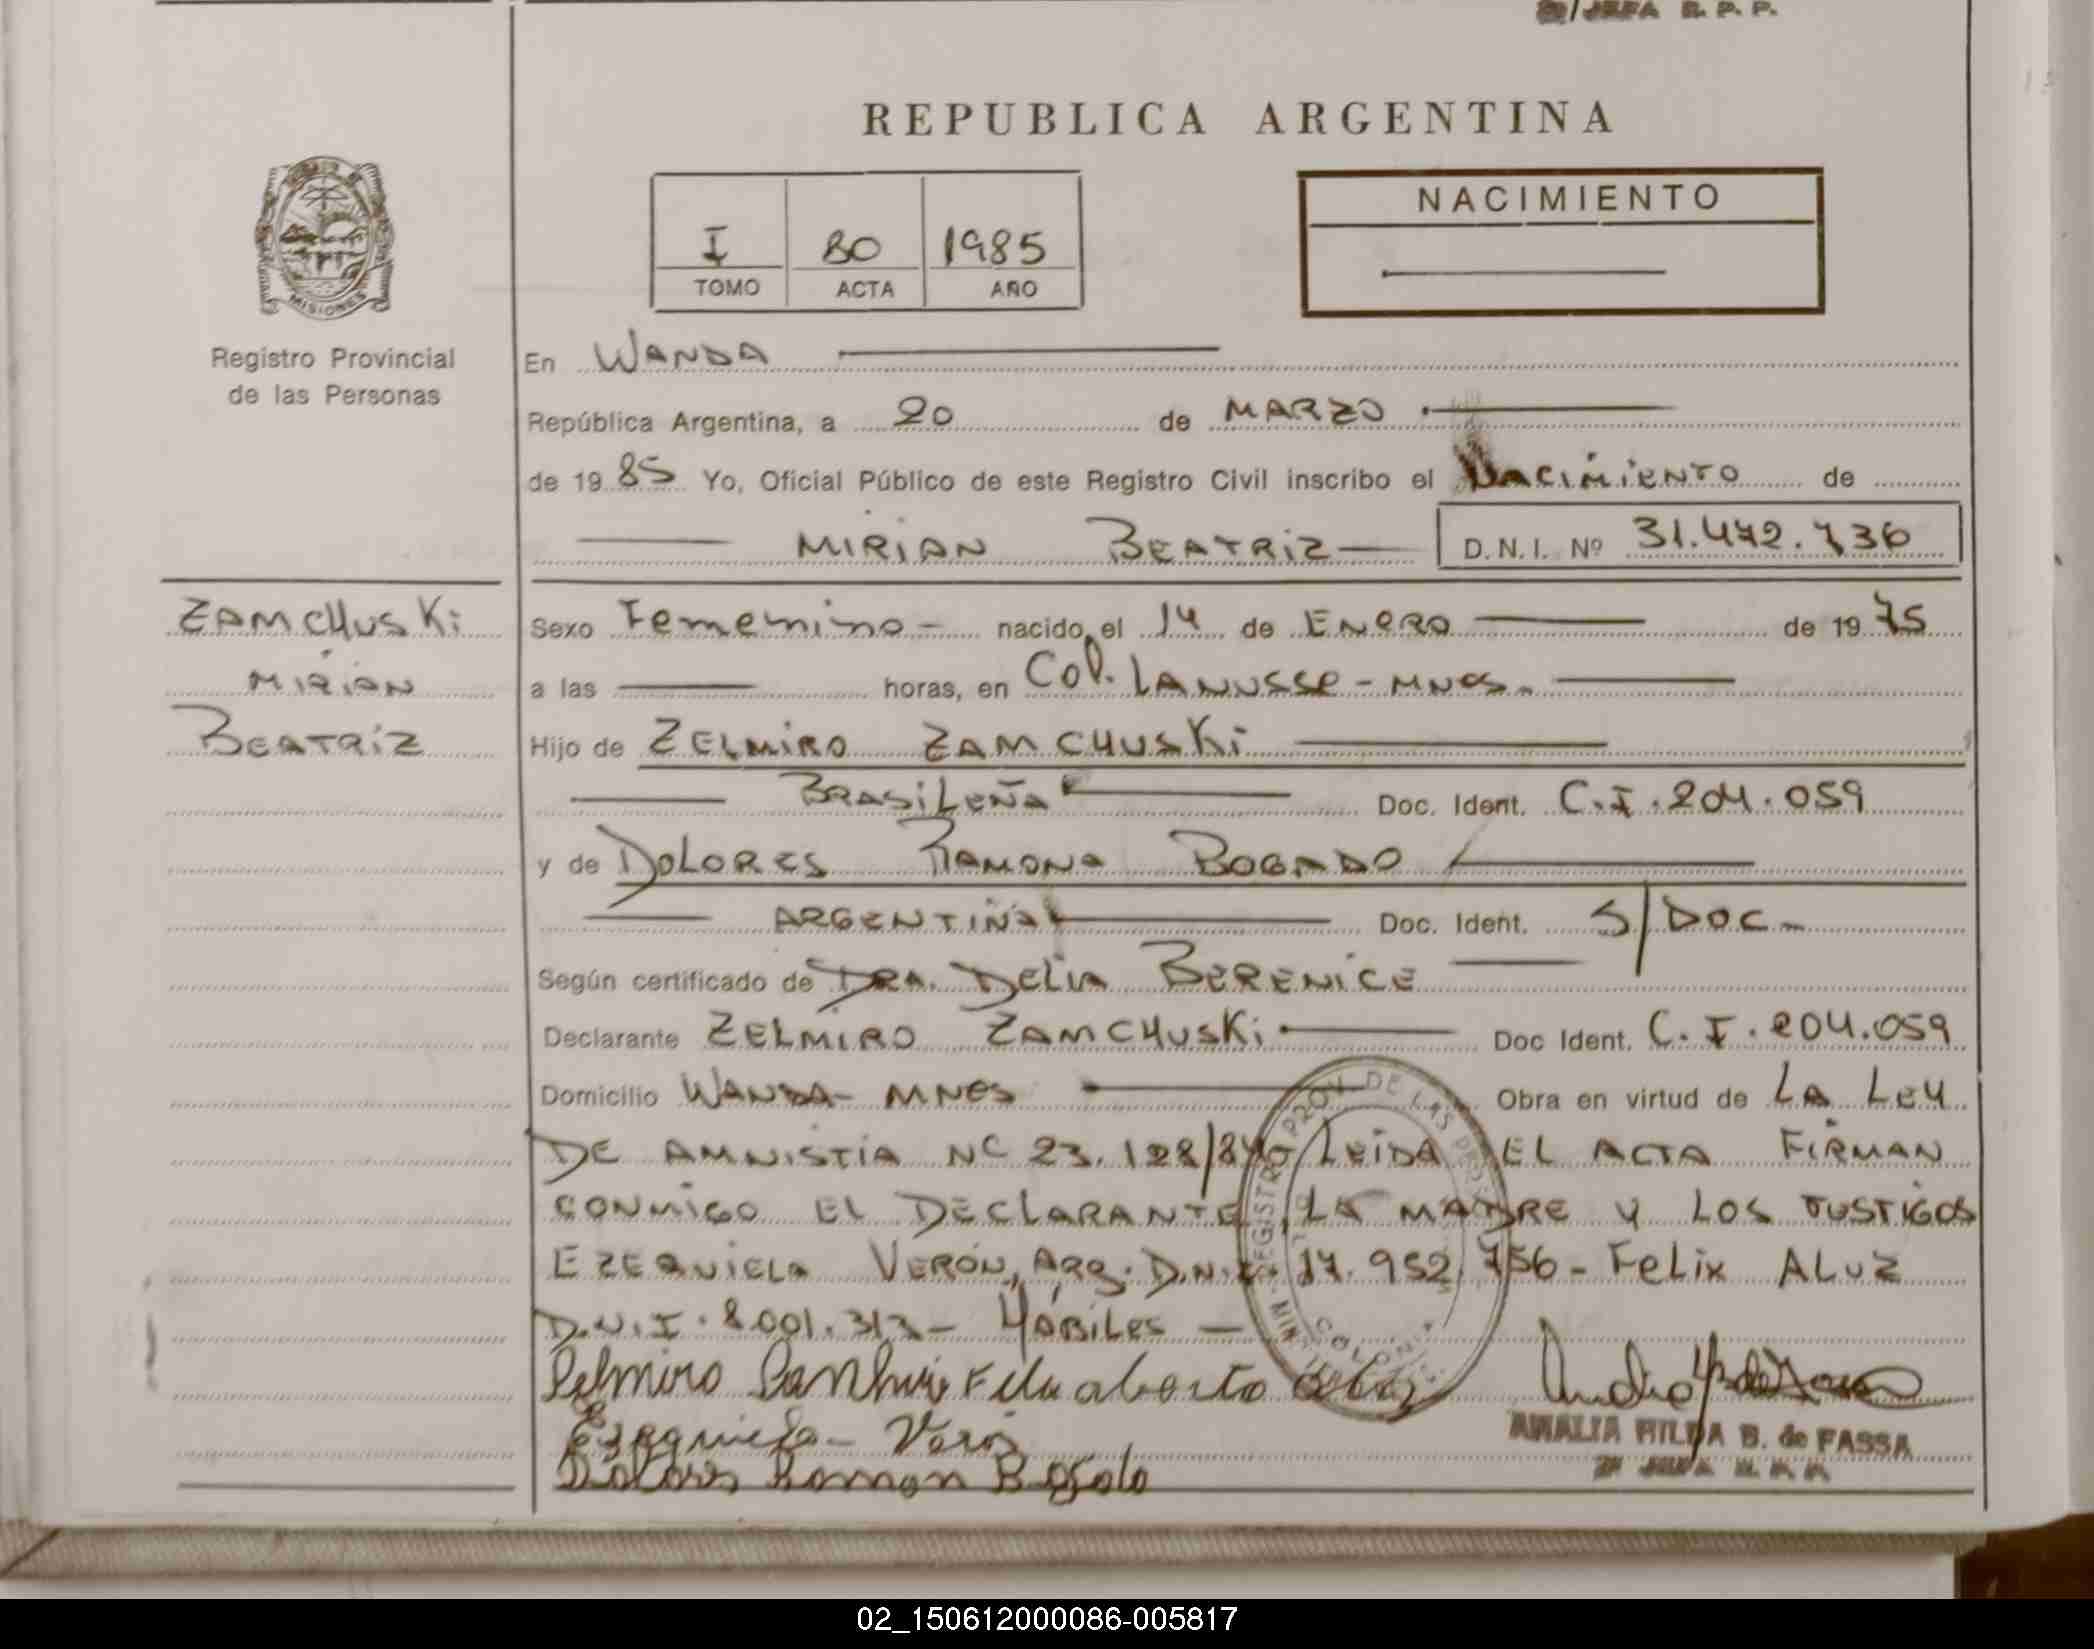 /JEFA R. P. P.
REPUBLICA ARGENTINA
NACIMIENTO
I 80 1985
TOMO ACTA AÑO
MISIONES
Registro Provincial
de las Personas
En WANDA
República Argentina, a 20 de MARZO
de 1985 Yo, Oficial Público de este Registro Civil inscribo el NACIMIENTO de
MIRIAN BEATRIZ D.N.I. Nº 31.472.736
ZAMCHUSKi
MIRIAN
BEATRIZ
Sexo Fememino - nacido el 14 de ENERO de 1975
a las horas, en Col. LANUSSE - MNES.
Hijo de ZELMIRO ZAMCHUSKi
BRASILEÑA Doc. Ident. C.I. 204.059
y de DOLORES RAMONA BOGADO
ARGENTIÑA Doc. Ident. S/DOC-
Según certificado de DRA. DELIA BERENICE
Declarante ZELMIRO ZAMCHUSKi Doc Ident. C.I. 204.059
Domicilio WANDA - MNES Obra en virtud de LA LEY
DE AMNISTIA Nº 23.128/84 LEIDA EL ACTA FIRMAN
CONMIGO EL DECLARANTE, LA MADRE Y LOS TUSTIGOS
EZEQUIELA VERÓN, ARG. D.N.I. 17.952.756 - FELIX ALUZ
D.N.I. 8.001.313 - HÁBILES -
Ezequiela - Veron
AMALIA HILDA B. de FASSA
02_150612000086-005817